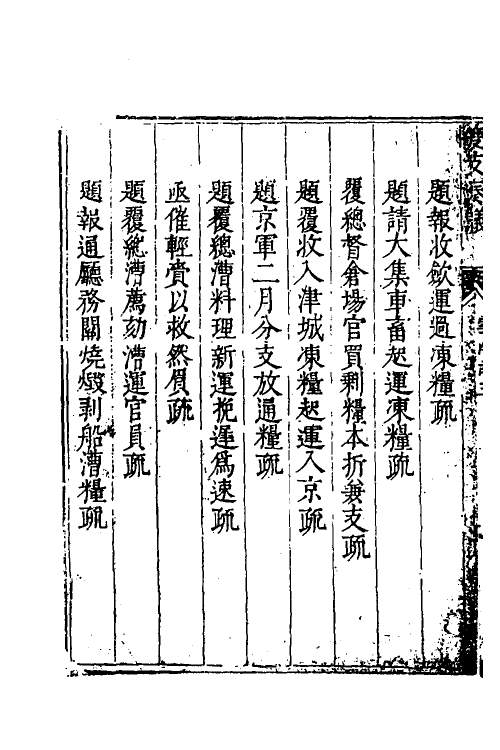 題報收歛運過凍糧疏
題請大集車畜起運凍糧疏
覆總督倉場官買剩糧本折兼支疏
題覆收入津城凍糧起運入京疏
題京軍二月分支放通糧疏
題覆總漕料理新運挽遲爲速疏
亟催輕賫以救然眉疏
題覆總漕薦劾漕運官員疏
題報通廳務關燒燬剥船漕糧疏